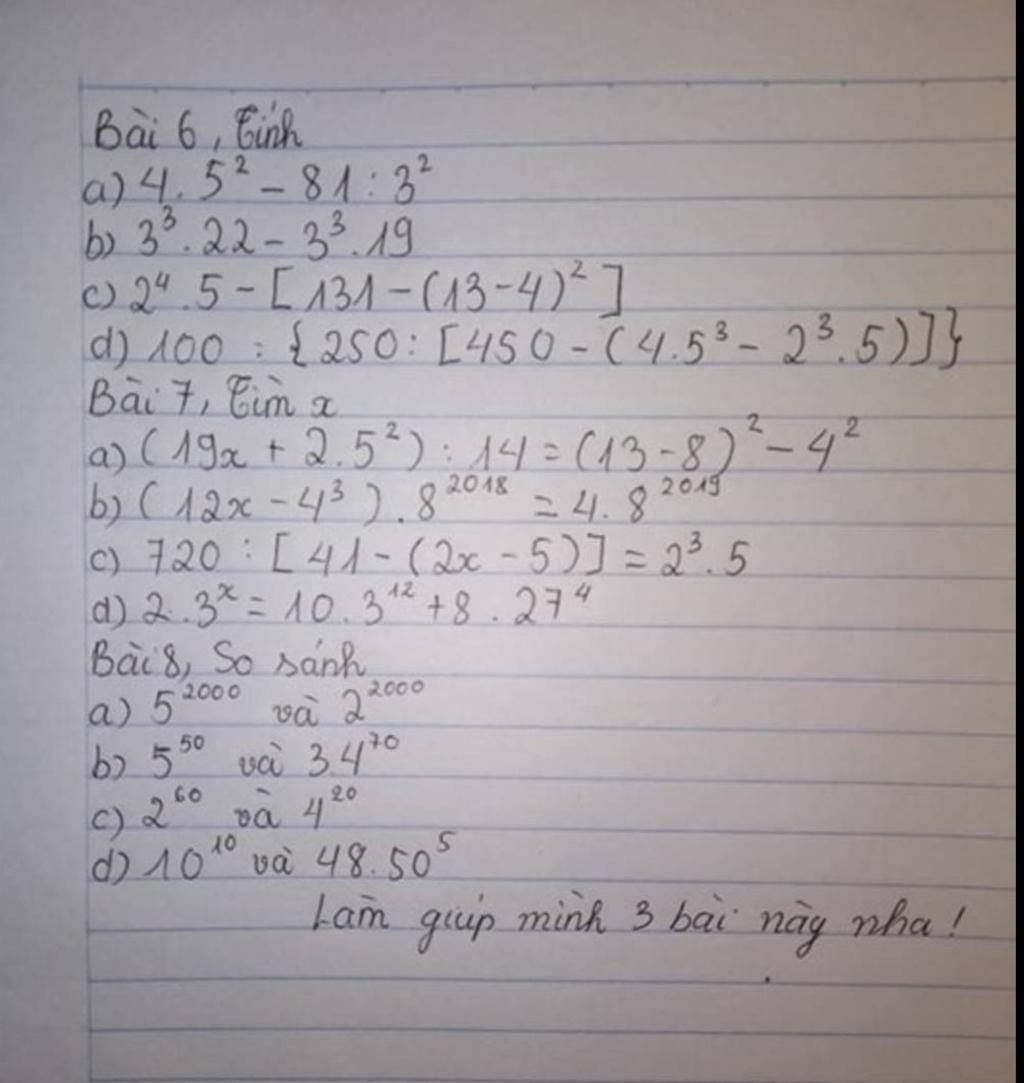 Bài 6, Tính
a) 4. 5² – 81 : 3²
b) 3³. 22 – 3³. 19
c) 2⁴. 5 – [ 131 – (13-4)² ]
d) 100 : { 250 : [450 – (4.5³ – 2³. 5)]}
Bài 7, Tìm x
a) (19x + 2.5²) : 14 = (13-8)² – 4²
b) ( 12x – 4³ ). 8²⁰¹⁸ = 4. 8²⁰¹⁹
c) 720 : [ 41 – (2x – 5)] = 2³. 5
d) 2. 3ˣ = 10. 3¹² + 8 . 27⁴
Bài 8, So sánh
a) 5²⁰⁰⁰ và 2²⁰⁰⁰
b) 5⁵⁰ và 34⁷⁰
c) 2⁶⁰ và 4²⁰
d) 10¹⁰ và 48.50⁵
Làm giúp mình 3 bài này nha !